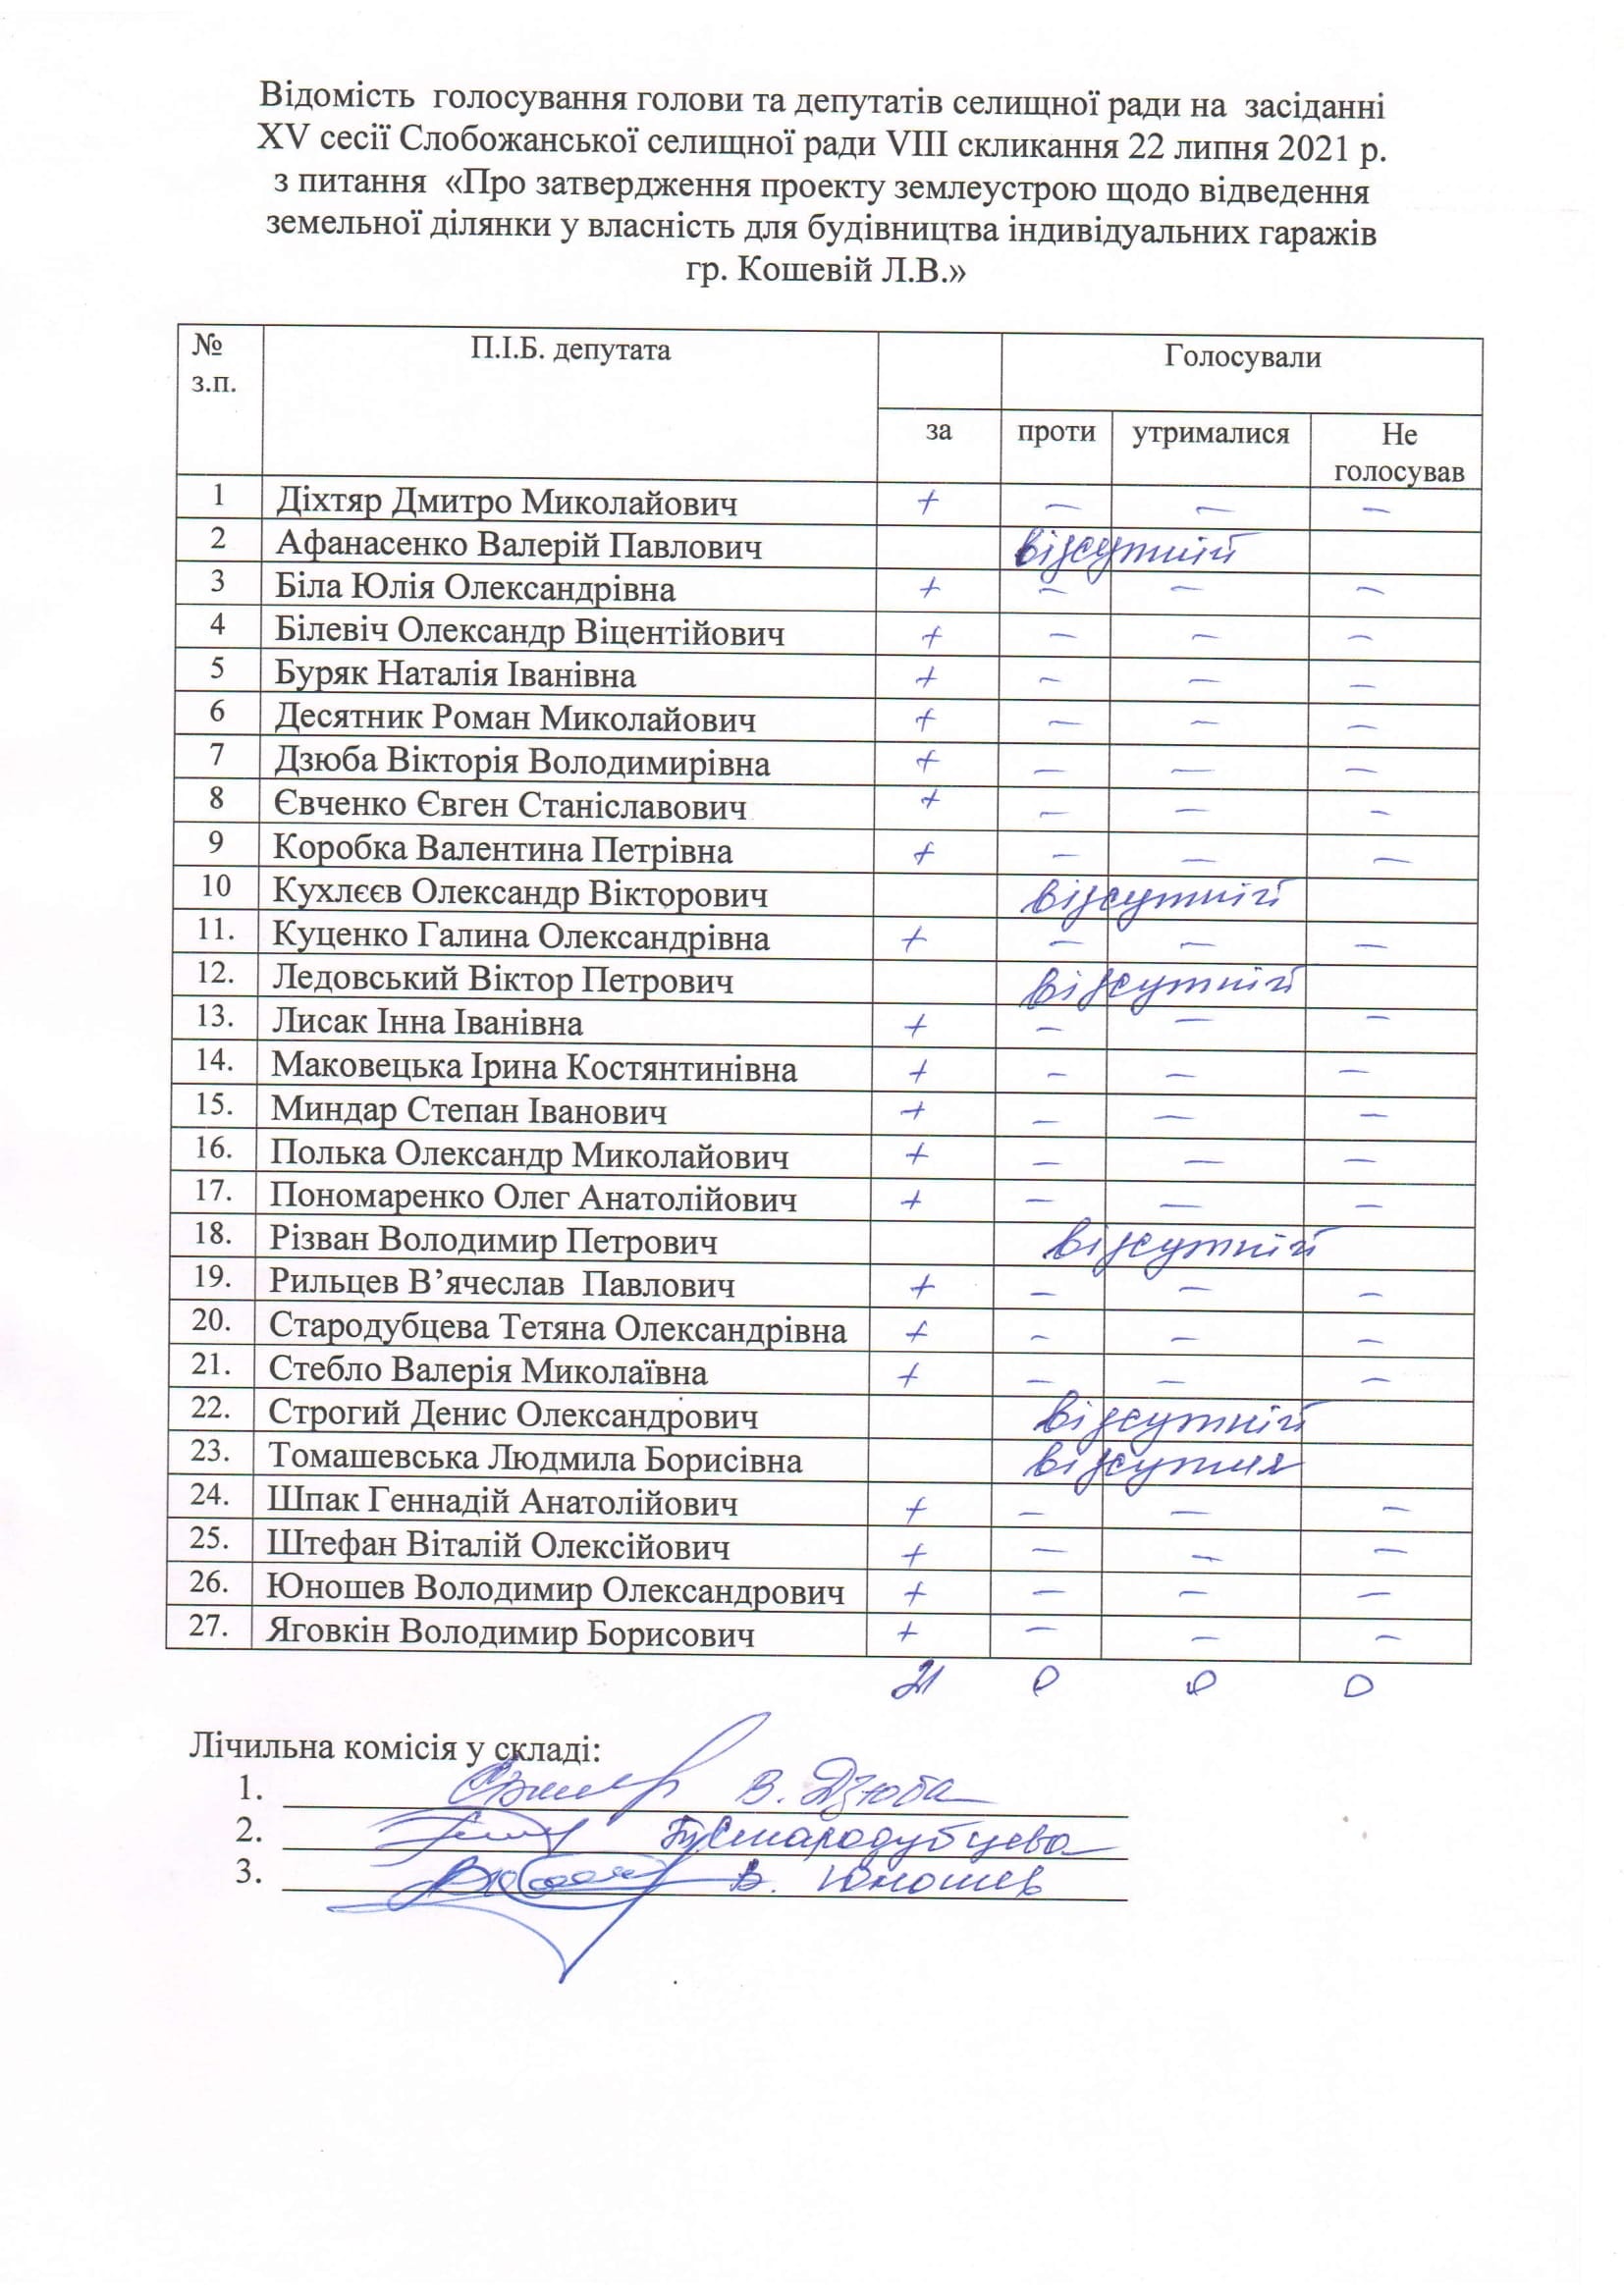 Відомість голосування голови та депутатів селищної ради на засіданні
XV сесії Слобожанської селищної ради VIII скликання 22 липня 2021 р.
з питання «Про затвердження проекту землеустрою щодо відведення
земельної ділянки у власність для будівництва індивідуальних гаражів
гр. Кошевій Л.В.»
№ з.п. П.І.Б. депутата Голосували
за проти утрималися Не голосував
1 Діхтяр Дмитро Миколайович + – – –
2 Афанасенко Валерій Павлович відсутній
3 Біла Юлія Олександрівна + – – –
4 Білевіч Олександр Віцентійович + – – –
5 Буряк Наталія Іванівна + – – –
6 Десятник Роман Миколайович + – – –
7 Дзюба Вікторія Володимирівна + – – –
8 Євченко Євген Станіславович + – – –
9 Коробка Валентина Петрівна + – – –
10 Кухлєєв Олександр Вікторович відсутній
11. Куценко Галина Олександрівна + – – –
12. Ледовський Віктор Петрович відсутній
13. Лисак Інна Іванівна + – – –
14. Маковецька Ірина Костянтинівна + – – –
15. Миндар Степан Іванович + – – –
16. Полька Олександр Миколайович + – – –
17. Пономаренко Олег Анатолійович + – – –
18. Різван Володимир Петрович відсутній
19. Рильцев В’ячеслав Павлович + – – –
20. Стародубцева Тетяна Олександрівна + – – –
21. Стебло Валерія Миколаївна + – – –
22. Строгий Денис Олександрович відсутній
23. Томашевська Людмила Борисівна відсутня
24. Шпак Геннадій Анатолійович + – – –
25. Штефан Віталій Олексійович + – – –
26. Юношев Володимир Олександрович + – – –
27. Яговкін Володимир Борисович + – – –
21 0 0 0
Лічильна комісія у складі:
1. В. Дзюба
2. Т. Стародубцева
3. В. Юношев